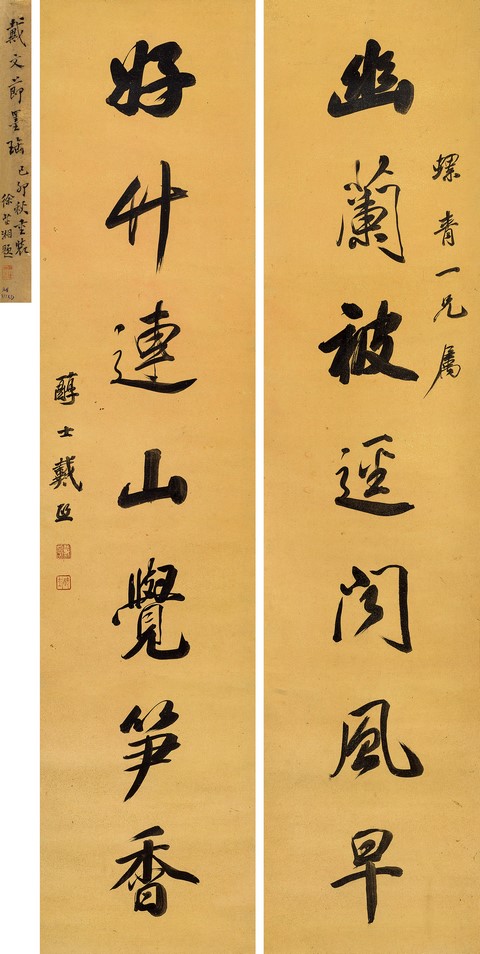 螺青一兄属
幽蘭被逕聞風早
好竹連山覺笋香
醇士戴熙
戴文節墨瑤
己卯秋重裝
徐 湘題